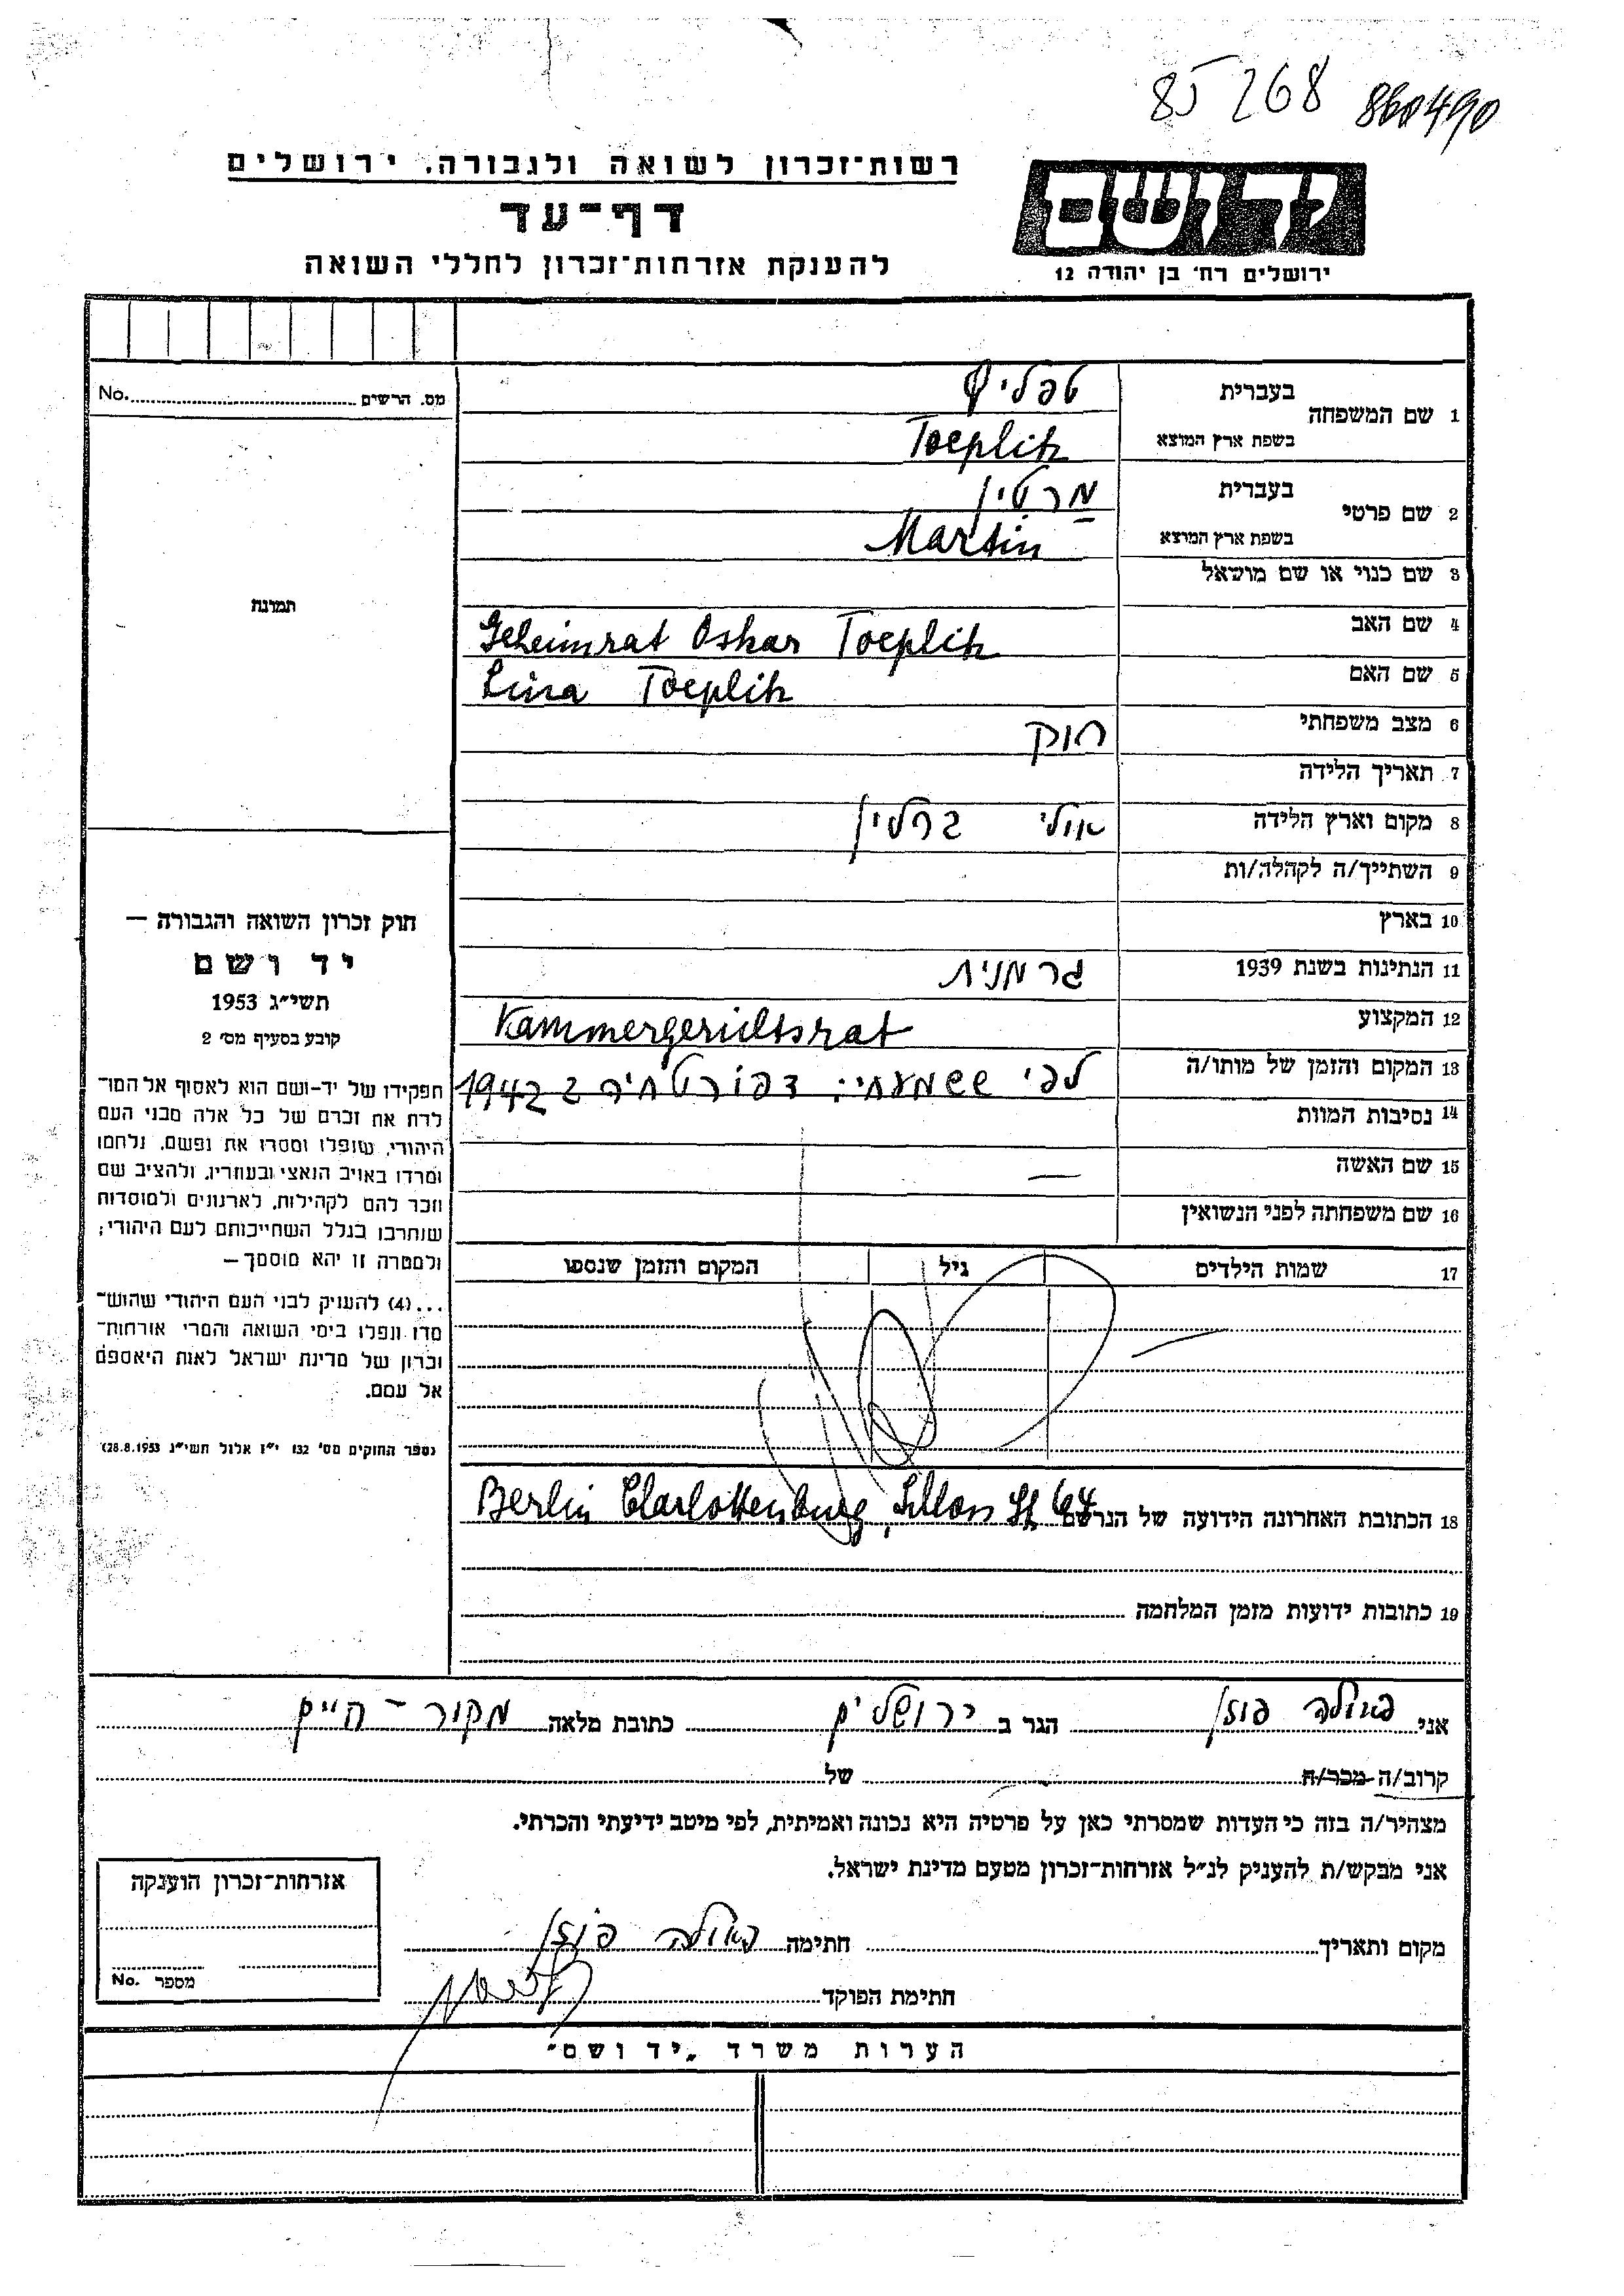 85268 860490
רשות־זכרון לשואה ולגבורה, ירושלים
דף־עד
להענקת אזרחות־זכרון לחללי השואה
יד ושם
ירושלים רח' בן יהודה 12
מס. הרשים No.
תמונה
1 שם המשפחה
בעברית טפליץ
בשפת ארץ המוצא Toeplitz
2 שם פרטי
בעברית מרטין
בשפת ארץ המוצא Martin
3 שם כנוי או שם מושאל
4 שם האב Geheimrat Oskar Toeplitz
5 שם האם Lina Toeplitz
6 מצב משפחתי רווק
7 תאריך הלידה
8 מקום וארץ הלידה אולי ברלין
9 השתייך/ה לקהלה/ות
10 בארץ
11 הנתינות בשנת 1939 גרמנית
12 המקצוע Kammergerichtsrat
13 המקום והזמן של מותו/ה לפי ששמעתי: דפורטציה ב 1942
14 נסיבות המוות
15 שם האשה —
16 שם משפחתה לפני הנשואין
17 שמות הילדים גיל המקום והזמן שנספו
18 הכתובת האחרונה הידועה של הנרשם Berlin Charlottenburg, Schloss St 64
19 כתובות ידועות מזמן המלחמה
חוק זכרון השואה והגבורה —
יד ושם
תשי״ג 1953
קובע בסעיף מס׳ 2
תפקידו של יד-ושם הוא לאסוף אל המו־
לדת את זכרם של כל אלה מבני העם
היהודי, שנפלו ומסרו את נפשם, נלחמו
ומרדו באויב הנאצי ובעוזריו, ולהציב שם
וזכר להם לקהילות, לארגונים ולמוסדות
שנחרבו בגלל השתייכותם לעם היהודי;
ולמטרה זו יהא מוסמך —
...(4) להעניק לבני העם היהודי שהוש־
מדו ונפלו בימי השואה והמרי אזרחות־
זכרון של מדינת ישראל לאות היאספם
אל עמם.
(ספר החוקים מס׳ 132 י״ז אלול תשי״ג 28.8.1953)
אני פאולה פוזן הגר ב ירושלים כתובת מלאה מקור - חיים
קרוב/ה מכר/ה של
מצהיר/ה בזה כי העדות שמסרתי כאן על פרטיה היא נכונה ואמיתית, לפי מיטב ידיעתי והכרתי.
אני מבקש/ת להעניק לנ״ל אזרחות־זכרון מטעם מדינת ישראל.
מקום ותאריך חתימה פאולה פוזן
חתימת הפוקד
אזרחות־זכרון הוענקה
מספר No.
הערות משרד „יד ושם״